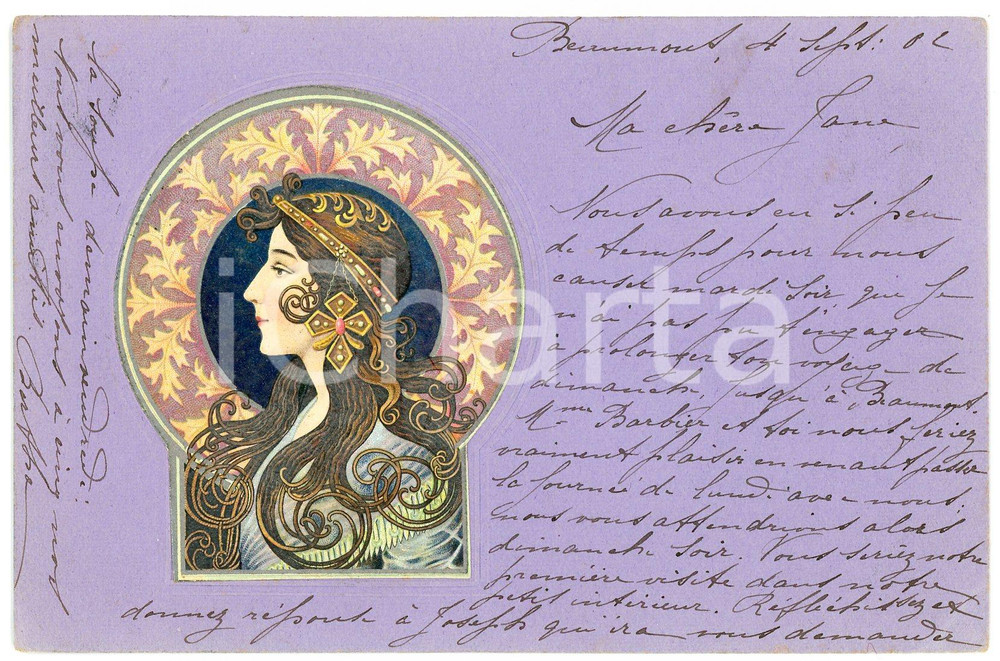 Beaumont, 4 Sept: 02
Ma chère Jane
Nous avons eu si peu
de temps pour nous
causer mardi soir que je
n'ai pas pu t'engager
à prolonger ton voyage de
dimanche, jusqu'à Beaumont.
Mme Barbier et toi nous feriez
vraiment plaisir en venant passer
la journée de lundi avec nous.
nous vous attendrions alors
dimanche soir. Vous seriez notre
première visite dans notre
petit intérieur. Réfléchissez et
donnez réponse à Joseph qui ira vous demander
la soupe demain vendredi.
Nous vous envoyons à cinq nos
meilleurs amitiés. Bertha
iCharta